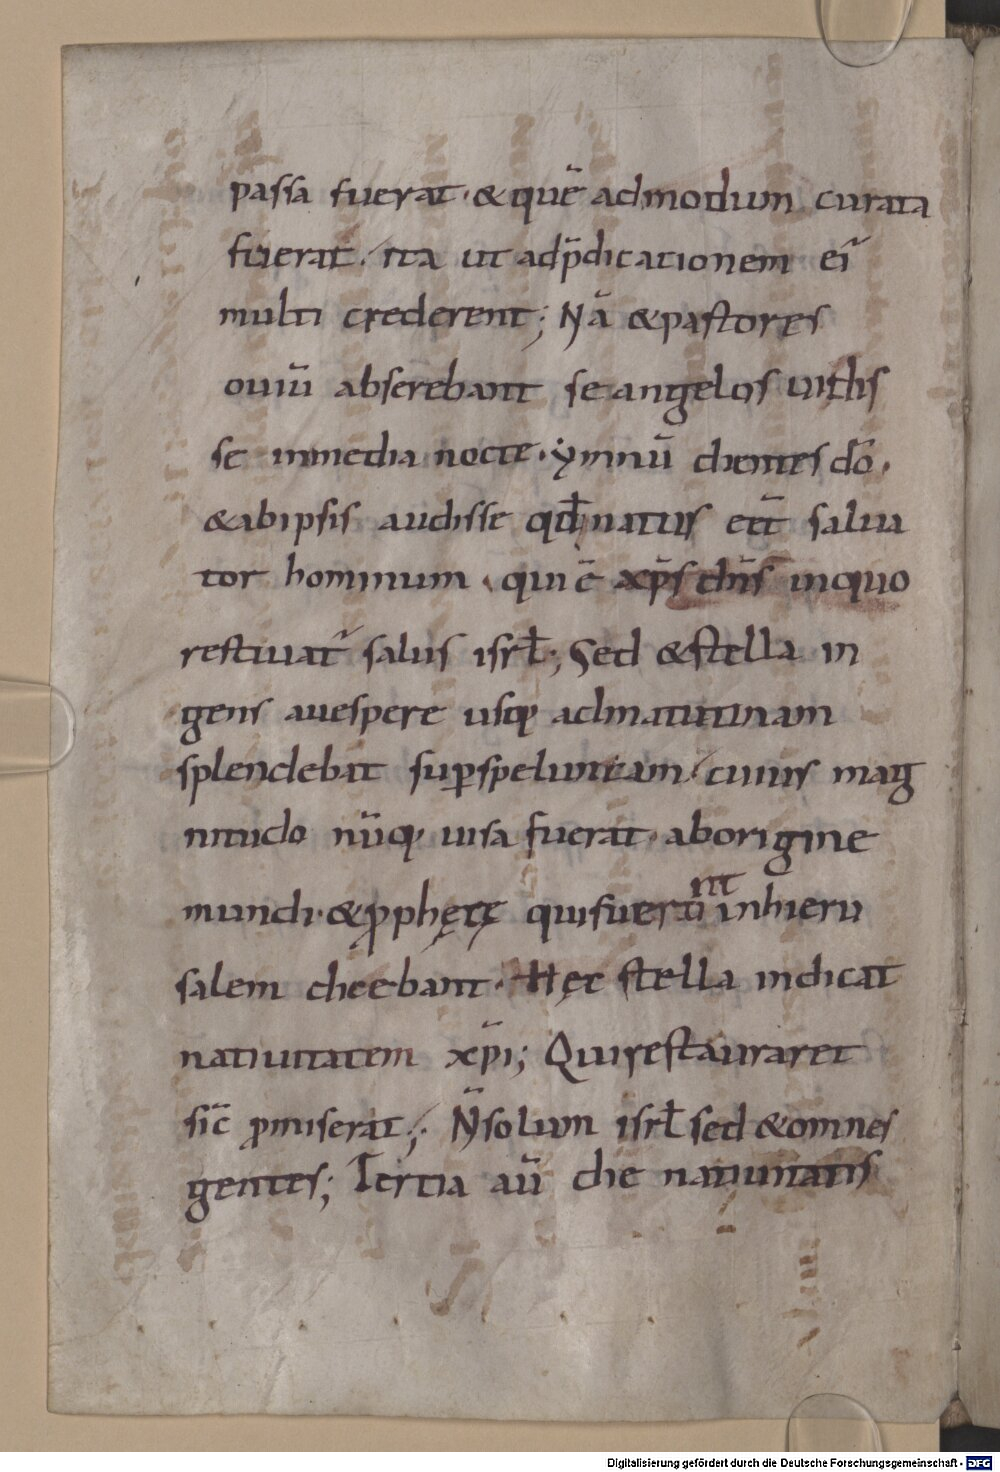 passa fuerat · & quē admodum curata
fuerat · ita ut adp̄dicationem eī
multi crederent ; Nā & pastores
ouiū abserebant se angelos uidis
se inmedia nocte · ymnū dicentes dō ·
& abipsis audisse qđ natus eēt salua
tor hominum · qui ē xp̄s dn̄s inquo
restiuat̄ salus isrł ; Sed & stella in
gens auespere usq; admatutinam
splendebat sup̱ speluncam · cuius mag
nitudo nūq; uisa fuerat · aborigine
mundi · & ꝓphętę quifuer̄t nt inhieru
salem dicebant · Hęc stella indicat
natiuitatem xp̄i ; Qui restauraret
sīc ꝓmiserat ; · N̄ solum isrł sed & omnes
gentes ; Tertia aū die natiuitatis
Digitalisierung gefördert durch die Deutsche Forschungsgemeinschaft - DFG